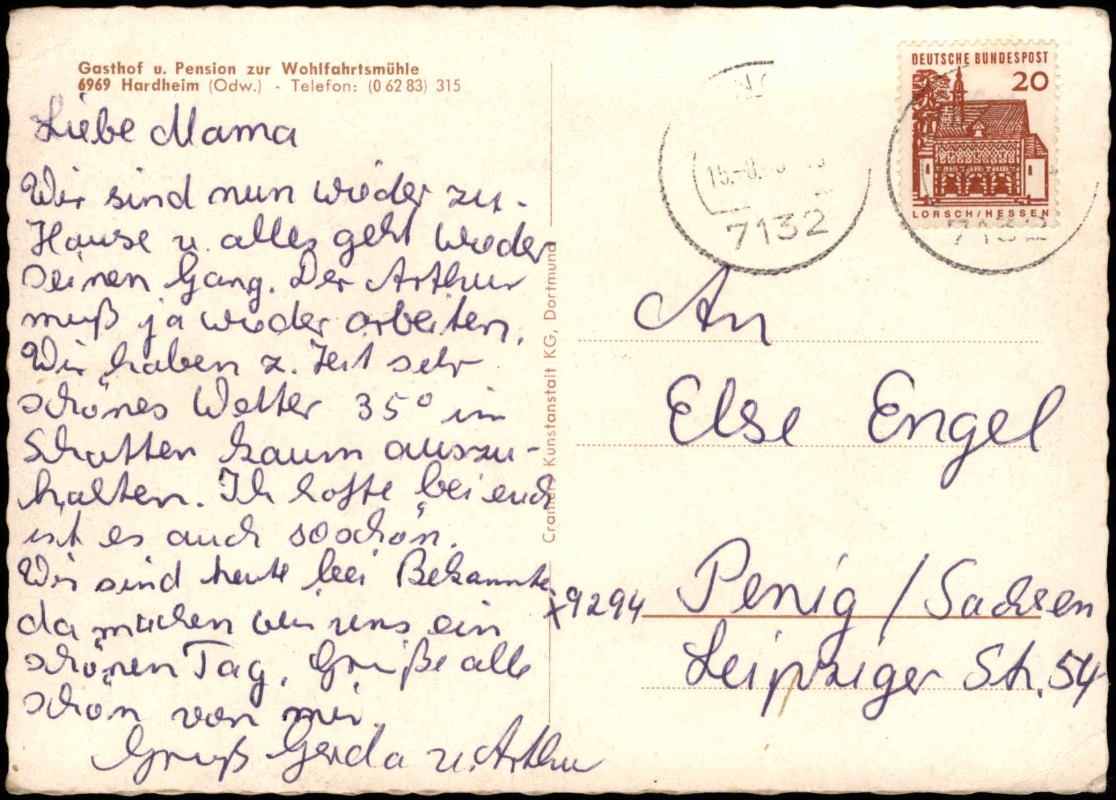 Gasthof u. Pension zur Wohlfahrtsmühle
6969 Hardheim (Odw.) - Telefon: (0 62 83) 315
Liebe Mama
Wir sind nun wieder zu-
Hause u. alles geht wieder
seinen Gang. Der Arthur
muß ja wieder arbeiten.
Wir haben z. Zeit sehr
schönes Wetter 35° im
Schatten kaum auszu-
halten. Ich hoffe bei euch
ist es auch so schön.
Wir sind heute bei Bekannte
da machen wir uns ein
schönen Tag. Grüße alle
schön von mir.
Gruß Gerda u. Arthur
Cramers Kunstanstalt KG, Dortmund
DEUTSCHE BUNDESPOST
20
LORSCH/HESSEN
7132
7132
An
Else Engel
X9294 Penig / Sachsen
Leipziger Str. 54